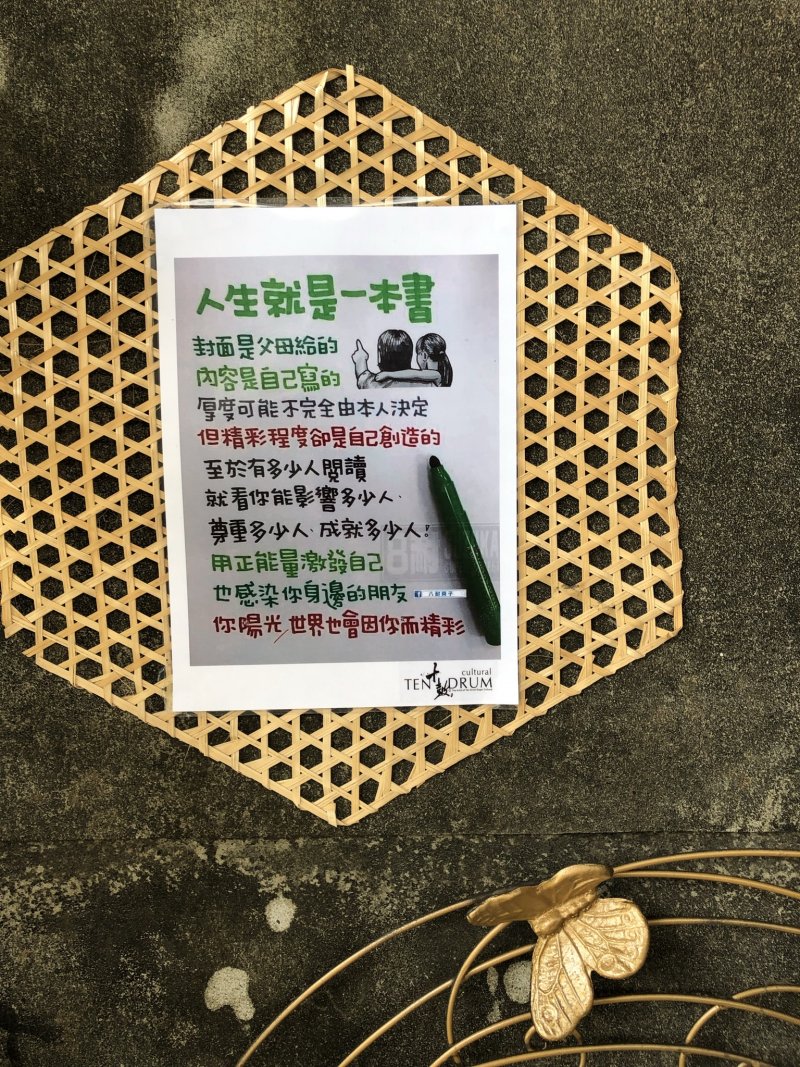 人生就是一本書
封面是父母給的
內容是自己寫的
厚度可能不完全由本人決定
但精彩程度卻是自己創造的
至於有多少人閱讀
就看你能影響多少人、
尊重多少人、成就多少人!
用正能量激發自己
也感染你身邊的朋友
f 八耐舜子
你陽光,世界也會因你而精彩
cultural
TEN十鼓DRUM